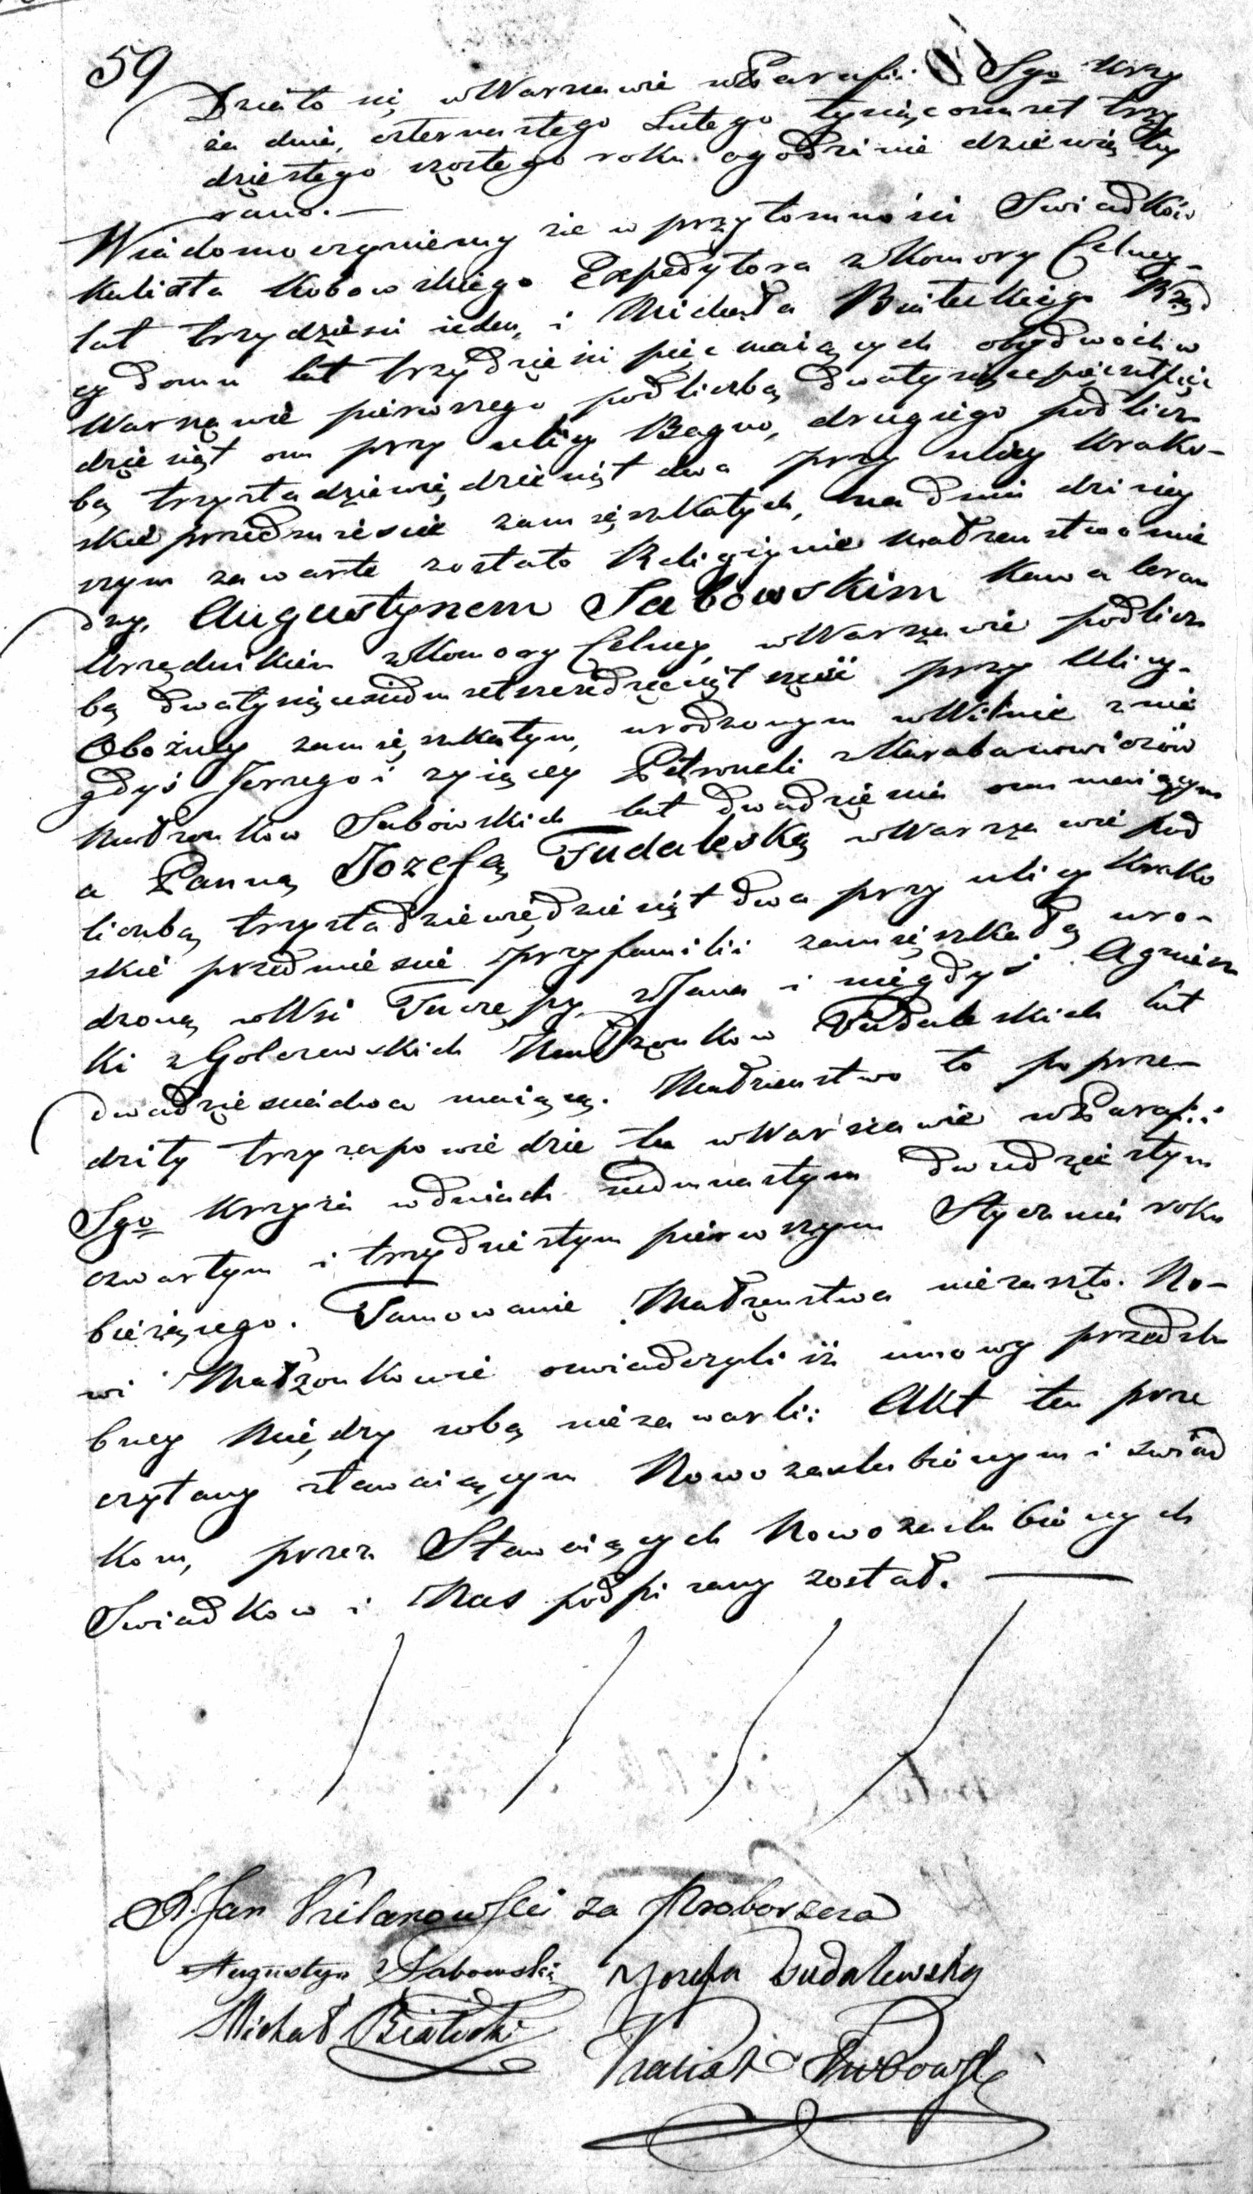 59
Działo się w Warszawie w Parafii Sgo Krzy
ża dnia czternastego Lutego tysiąc osmset trzy
dziestego szostego roku o godzinie dziewiątej
rano. —
Wiadomo czyniemy że w przytomności Swiadków
Kalixta Kubowskiego Expedytora z Komory Celney
lat trzydzieści ieden, i Michała Białeckiego Rząd
cy domu lat trzydzieści pięć maiących obydwóch w
Warszawie pierwszego pod liczbą dwatysiącepięćset pięć
dziesiąt osm przy ulicy Bagno, drugiego pod licz
bą trzysta dziewięćdziesiąt dwa przy ulicy Krako-
skie przedmieście zamięszkałych, na dniu dzisiey
szym zawarte zostało Religiynie Małżenstwo mię
dzy, Augustynem Sabowskim Kawalerem
Urzędnikiem z Komory Celney, w Warszawie pod licz
bą dwatysiącesiedmsetsześćdziesiąt sześć przy Ulicy
Oboźney zamięszkałym, urodzonym w Wilnie z nie
gdyś Jerzego i żyiącey Petroneli z Karabanowiczów
Małżonkow Sabowskich lat dwadzieścia osm maiącym
a Panną Jozefą Tudaleską w Warszawie pod
liczbą trzysta dziewięćdziesiąt dwa przy ulicy Krako
skie przedmieście przy familii zamięszkałą uro-
dzoną w Wsi Tuczępy, z Jana i niegdyś Agniesz
ki z Golczewskich Małżonkow Tudaleskich lat
dwadzieściadwa maiącą. Małżenstwo to poprze-
dziły trzy zapowiedzie tu w Warszawie w Parafii
Sgo Krzyża w dniach siedmnastym dwudziestym
czwartym i trzydziestym pierwszym Stycznia roku
bieżącego. Tamowanie Małżenstwa niezaszło. No-
wi Małżonkowie oswiadczyli iż umowy przedślu
bney Między sobą niezawarli: Akt ten prze
czytany stawaiącym Nowozaslubionym i swiad
kom, przez Stawaiących Nowozaslubionych
Swiadkow i Nas podpisany został. —
X. Jan Wilanowski za Proboszcza
Augustyn Sabowski Jozefa Tudalewska
Michał Białecki Kalixt Kubowski